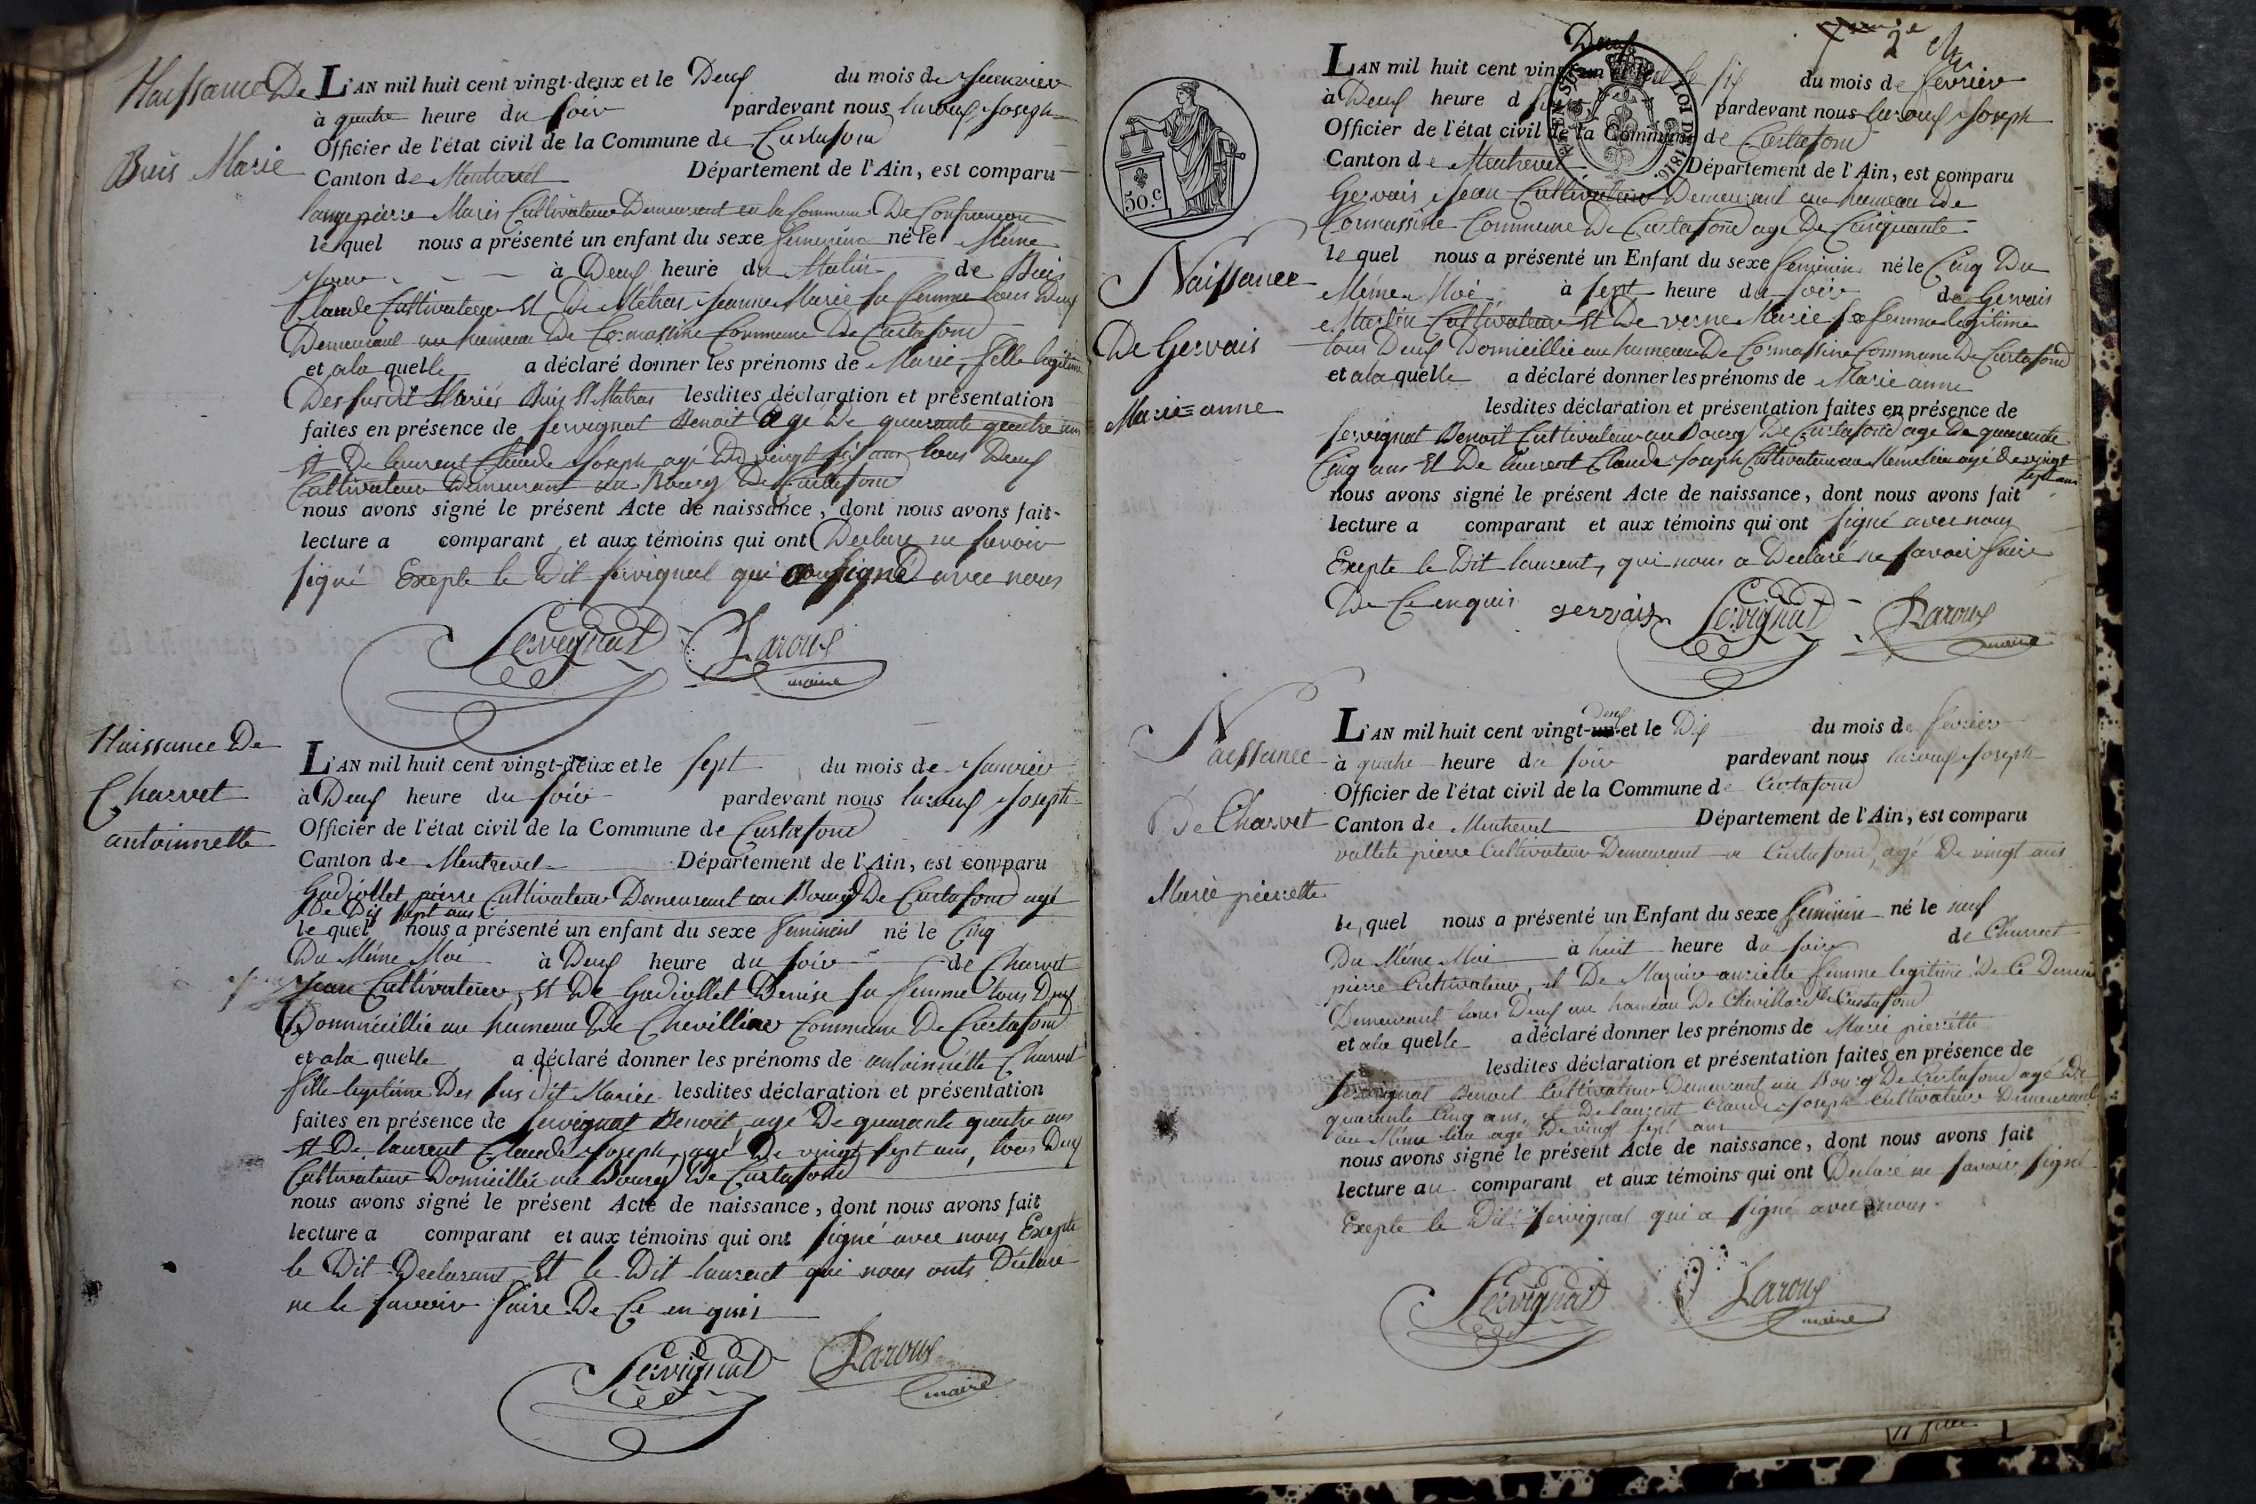 Naissance De
Buis Marie
L'AN mil huit cent vingt-deux et le Deux du mois de Janvier
à quatre heure du soir pardevant nous Laroux Joseph
Officier de l'état civil de la Commune de Curtafond
Canton de Montrevel Département de l'Ain, est comparu
pierre Marie Cultivateur Demeurant en la Commune De Confrançon
le quel nous a présenté un enfant du sexe feminin né le Même
Jour à Deux heure du Matin de Buis
Claude Cultivateur Et De Métras Jeanne Marie sa femme tous Deux
Demeurant au hameau De Cormassine Commune De Curtafond
et a la quelle a déclaré donner les prénoms de Marie, fille legitime
Des susdit Mariés Buis Et Matras lesdites déclaration et présentation
faites en présence de servignat Benoit agé De quarante quatre ans
Et De laurent Claude Joseph agé De vingt six ans tous Deux
Cultivateur Demeurant au Bourg De Curtafond
nous avons signé le présent Acte de naissance, dont nous avons fait
lecture a comparant et aux témoins qui ont Declaré ne savoir
signé Exepte le Dit servignat qui a signé avec nous
Servignat Laroux
maire
Naissance De
Charvet
antoinnette
L'AN mil huit cent vingt-deux et le sept du mois de Janvier
à Deux heure du soir pardevant nous laroux Joseph
Officier de l'état civil de la Commune de Curtafond
Canton de Montrevel Département de l'Ain, est comparu
Gadiollet pierre Cultivateur Demeurant au Bourg De Curtafond agé
de Dix sept ans
le quel nous a présenté un enfant du sexe feminin né le Cinq
Du Même Moi à Deux heure du soir de Charvet
Jean Cultivateur, Et De Gadiollet Denise sa femme tous Deux
Dommicillié au hameau De Chevilliar Commune De Curtafond
et a la quelle a déclaré donner les prénoms de antoinnette Charvet
fille legitime Des sus dit Mariés lesdites déclaration et présentation
faites en présence de servignat Benoit agé De quarante quatre ans
Et De laurent Claude Joseph, agé De vingt sept ans, tous Deux
Cultivateur Domicillié au Bourg De Curtafond
nous avons signé le présent Acte de naissance, dont nous avons fait
lecture a comparant et aux témoins qui ont signé avec nous Exepte
le Dit Declarant Et le Dit laurent qui nous onts Declaré
ne le savoir faire De Ce en quis
Servignat Laroux
maire
2
50.c
LOI DE 1816.
Naissance
De Gervais
Marie=anne
Deux
L'AN mil huit cent vingt et le six du mois de fevrier
à Deux heure d soir pardevant nous laroux Joseph
Officier de l'état civil de la Commune de Curtafond
Canton de Montrevel Département de l'Ain, est comparu
Gervais Jean Cultivateur Demeurant au hameau De
Cormassine Commune De Curtafond agé De Cinquante
le quel nous a présenté un Enfant du sexe feminin né le Cinq Du
Même Moi à sept heure du soir de Gervais
Martin Cultivateur Et De verne Marie sa femme legitime
tous Deux Domicillié au hameau De Cormassine Commune De Curtafond
et a la quelle a déclaré donner les prénoms de Marie anne
lesdites déclaration et présentation faites en présence de
servignat Benoit Cultivateur au Bourg De Curtafond agé De quarante
Cinq ans Et De laurent Claude Joseph Cultivateur au Même lieu agé de vingt
sept ans
nous avons signé le présent Acte de naissance, dont nous avons fait
lecture a comparant et aux témoins qui ont signé avec nous
Exepte le Dit laurent, qui nous a Declaré ne savoir faire
De Ce enquis gervais Servignat Laroux
maire
Naissance
De Charvet
Marie pierrette
Deux
L'AN mil huit cent vingt-un et le Dix du mois de fevrier
à quatre heure du soir pardevant nous laroux Joseph
Officier de l'état civil de la Commune de Curtafond
Canton de Montrevel Département de l'Ain, est comparu
pierre Cultivateur Demeurant a Curtafond, agé De vingt ans
le quel nous a présenté un Enfant du sexe feminin né le neuf
Du Même Moi à huit heure du soir de Charvet
pierre Cultivateur, et De femme legitime De Ce Dernier
Demeurant tous Deux au hameau De Chevillard De Curtafond
et a la quelle a déclaré donner les prénoms de Marie pierrette
lesdites déclaration et présentation faites en présence de
servignat Benoit Cultivateur Demeurant au Bourg De Curtafond agé De
quarante Cinq ans, et De laurent Claude Joseph Cultivateur Demeurant
au Même lieu agé De vingt sept ans
nous avons signé le présent Acte de naissance, dont nous avons fait
lecture au comparant et aux témoins qui ont Declaré ne savoir signé
Exepte le Dit servignat qui a signé avec nous
Servignat Laroux
maire